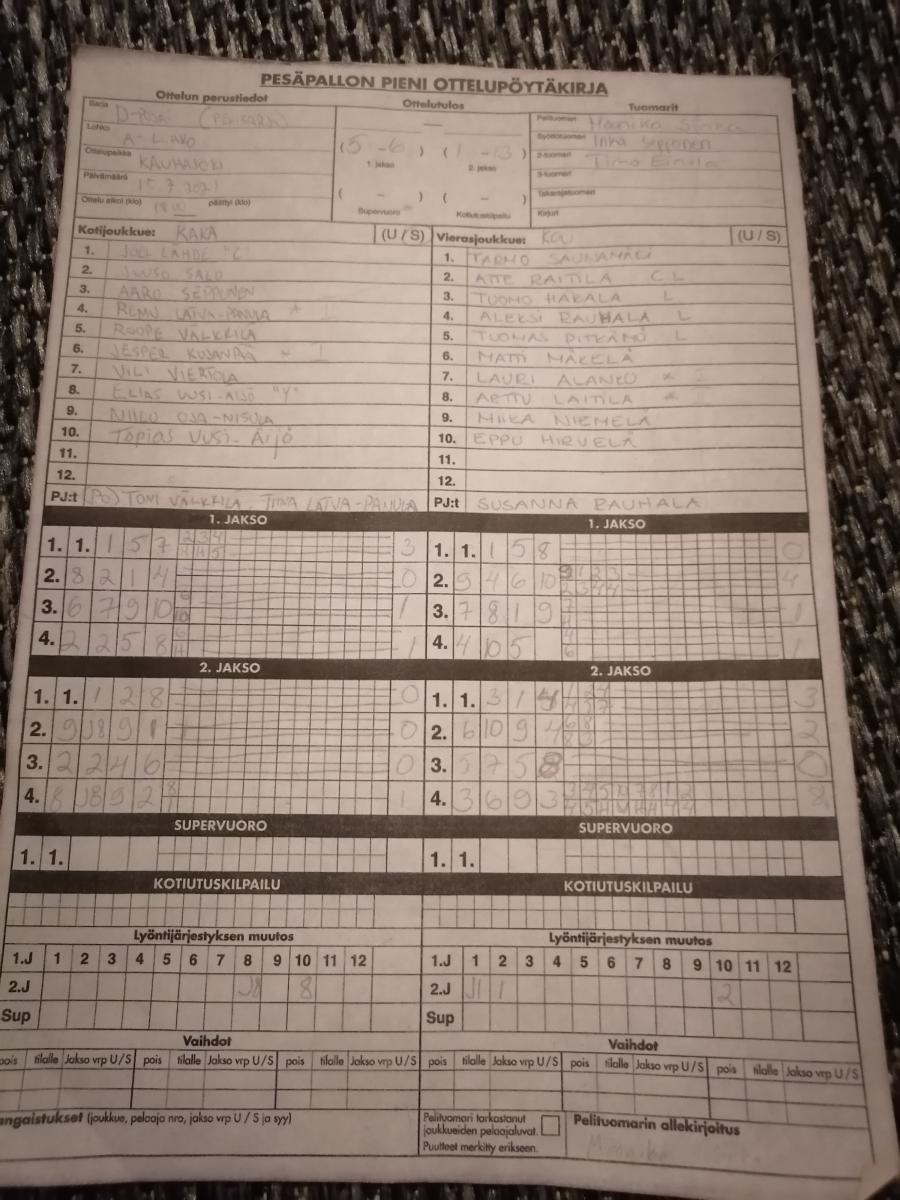 PESÄPALLON PIENI OTTELUPÖYTÄKIRJA
Ottelun perustiedot Ottelutulos Tuomarit
Sarja D-POJAT
Lohko A-LOHKO
Ottelupaikka KAUHAJOKI
Päivämäärä 15.7 2021
Ottelu alkoi (klo) 18 00 päättyi (klo)
(5 - 6) (1 - 13)
1. jakso 2. jakso
( - ) ( - )
Supervuoro Kotiutuskilpailu
Pelituomari
Syöttötuomari Inka Sepponen
2-tuomari Timo Einola
3-tuomari
Takarajatuomari
Kirjuri
Kotijoukkue: KAKA (U / S) Vierasjoukkue: (U / S)
1. JOEL LÄHDE "C" 1. TARMO SAUNAMÄKI
2. JUUSO SALO 2. ATTE RAITILA C L
3. AARO SEPPONEN 3. TUOMO HAKALA L
4. REMU LATVA-PANULA * II 4. ALEKSI RAUHALA L
5. ROOPE VÄLKKILÄ 5. TUOMAS PITKÄMÖ L
6. JESPER KUJANPÄÄ * I 6. MATTI MÄKELÄ
7. VILI VIERTOLA 7. LAURI ALANKO * I
8. ELIAS UUSI-ÄIJÖ "Y" 8. ARTTU LAITILA * II
9. NIILO OJA-NISULA 9. MIIKA NIEMELÄ
10. Topias Uusi-Äijö 10. EPPU HIRVELÄ
11. 11.
12. 12.
PJ:t (PO) TONI VÄLKKILÄ, TIINA LATVA-PANULA PJ:t SUSANNA RAUHALA
1. JAKSO 1. JAKSO
1. 1. 1 5 7 3 1. 1. 1 5 8 0
2. 8 2 1 4 0 2. 9 4 6 10 4
3. 6 7 9 10 1 3. 7 8 1 9 1
4. 2 2 5 8 1 4. 4 10 5 1
2. JAKSO 2. JAKSO
1. 1. 1 2 8 0 1. 1. 3 1 4 3
2. 9 J8 9 1 0 2. 6 10 9 4 2
3. 2 2 4 6 0 3. 5 7 5 8 0
4. 8 J8 9 2 1 4. 3 6 9 3 8
SUPERVUORO SUPERVUORO
1. 1. 1. 1.
KOTIUTUSKILPAILU KOTIUTUSKILPAILU
Lyöntijärjestyksen muutos Lyöntijärjestyksen muutos
1.J 1 2 3 4 5 6 7 8 9 10 11 12 1.J 1 2 3 4 5 6 7 8 9 10 11 12
2.J J8 8 2.J J1 1 2
Sup Sup
Vaihdot Vaihdot
pois tilalle Jakso vrp U / S pois tilalle Jakso vrp U / S pois tilalle Jakso vrp U / S pois tilalle Jakso vrp U / S pois tilalle Jakso vrp U / S pois tilalle Jakso vrp U / S
ngaistukset (joukkue, pelaaja nro, jakso vrp U / S ja syy)
Pelituomari tarkastanut
joukkueiden pelaajaluvat.
Puutteet merkitty erikseen.
Pelituomarin allekirjoitus